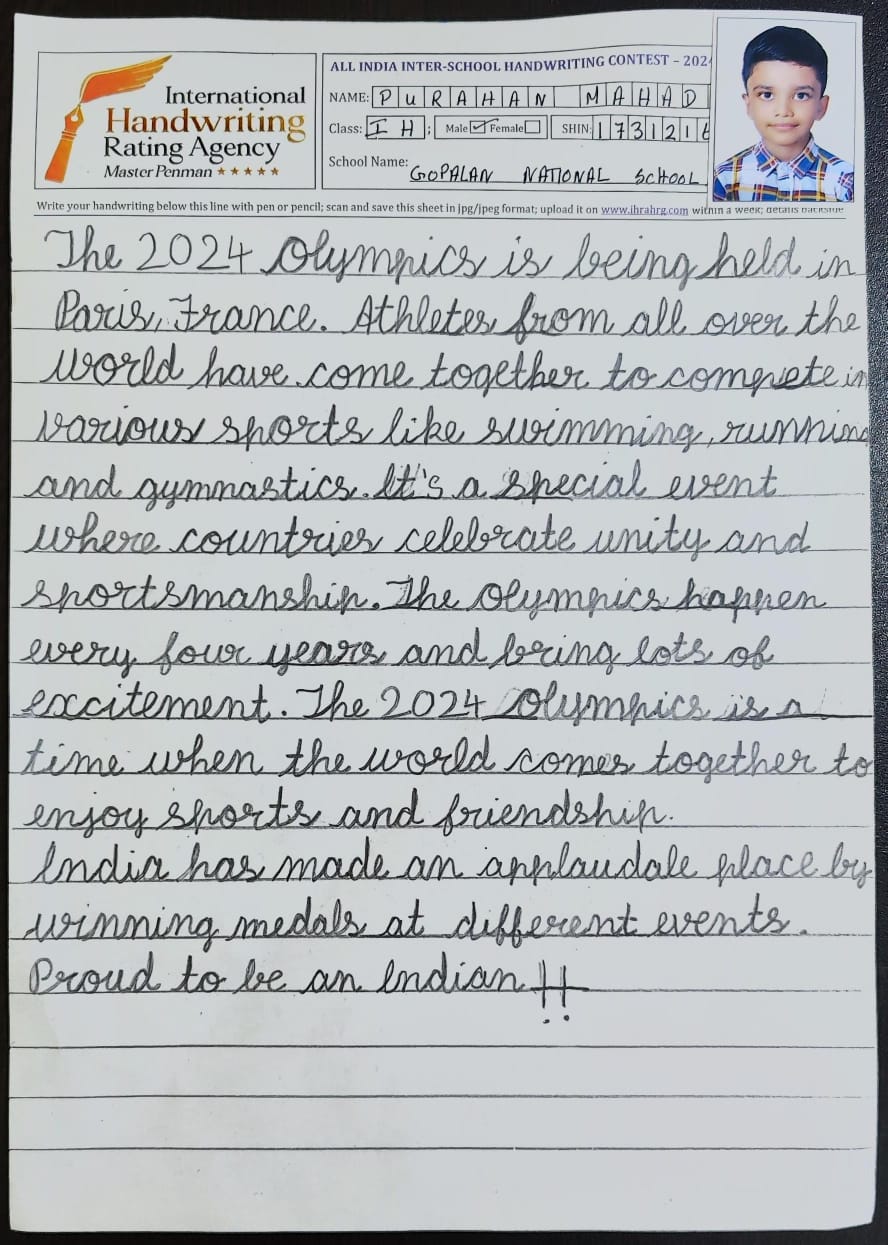 International
Handwriting
Rating Agency
Master Penman ★★★★★
ALL INDIA INTER-SCHOOL HANDWRITING CONTEST – 2024
NAME: PURAHAN MAHAD
Class: I H ; Male ✓ Female SHIN: 1731216
School Name: GOPALAN NATIONAL SCHOOL
Write your handwriting below this line with pen or pencil; scan and save this sheet in jpg/jpeg format; upload it on www.ihrahrg.com within a week; details backside
The 2024 Olympics is being held in
Paris, France. Athletes from all over the
world have come together to compete in
various sports like swimming, running
and gymnastics. It's a special event
where countries celebrate unity and
sportsmanship. The Olympics happen
every four years and bring lots of
excitement. The 2024 Olympics is a
time when the world comes together to
enjoy sports and friendship.
India has made an applaudale place by
winning medals at different events.
Proud to be an Indian!!